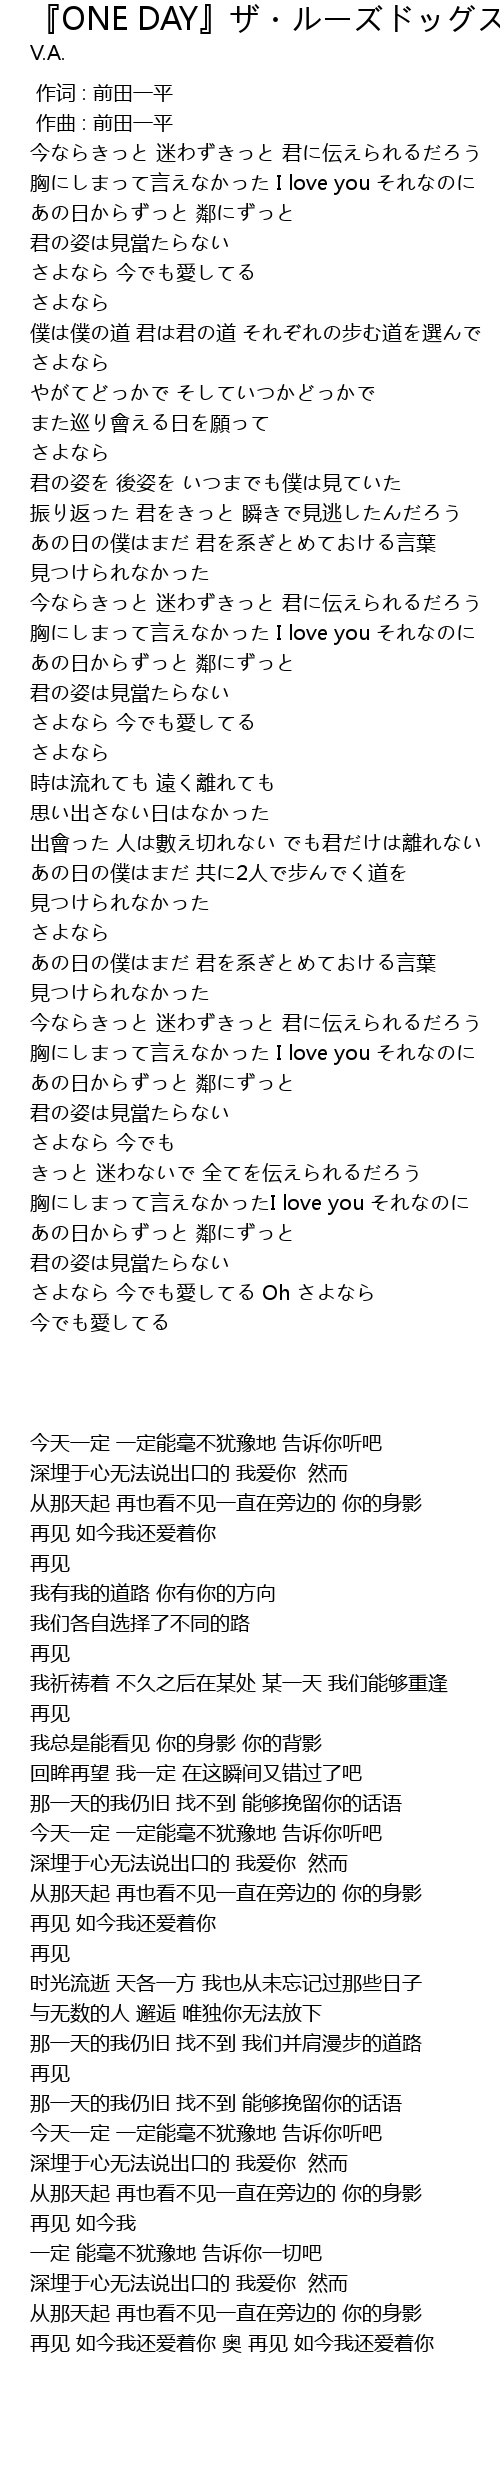 『ONE DAY』ザ・ルーズドッグス
V.A.
作词 : 前田一平
作曲 : 前田一平
今ならきっと 迷わずきっと 君に伝えられるだろう
胸にしまって言えなかった I love you それなのに
あの日からずっと 鄰にずっと
君の姿は見當たらない
さよなら 今でも愛してる
さよなら
僕は僕の道 君は君の道 それぞれの歩む道を選んで
さよなら
やがてどっかで そしていつかどっかで
また巡り會える日を願って
さよなら
君の姿を 後姿を いつまでも僕は見ていた
振り返った 君をきっと 瞬きで見逃したんだろう
あの日の僕はまだ 君を系ぎとめておける言葉
見つけられなかった
今ならきっと 迷わずきっと 君に伝えられるだろう
胸にしまって言えなかった I love you それなのに
あの日からずっと 鄰にずっと
君の姿は見當たらない
さよなら 今でも愛してる
さよなら
時は流れても 遠く離れても
思い出さない日はなかった
出會った 人は數え切れない でも君だけは離れない
あの日の僕はまだ 共に2人で歩んでく道を
見つけられなかった
さよなら
あの日の僕はまだ 君を系ぎとめておける言葉
見つけられなかった
今ならきっと 迷わずきっと 君に伝えられるだろう
胸にしまって言えなかった I love you それなのに
あの日からずっと 鄰にずっと
君の姿は見當たらない
さよなら 今でも
きっと 迷わないで 全てを伝えられるだろう
胸にしまって言えなかったI love you それなのに
あの日からずっと 鄰にずっと
君の姿は見當たらない
さよなら 今でも愛してる Oh さよなら
今でも愛してる
今天一定 一定能毫不犹豫地 告诉你听吧
深埋于心无法说出口的 我爱你  然而
从那天起 再也看不见一直在旁边的 你的身影
再见 如今我还爱着你
再见
我有我的道路 你有你的方向
我们各自选择了不同的路
再见
我祈祷着 不久之后在某处 某一天 我们能够重逢
再见
我总是能看见 你的身影 你的背影
回眸再望 我一定 在这瞬间又错过了吧
那一天的我仍旧 找不到 能够挽留你的话语
今天一定 一定能毫不犹豫地 告诉你听吧
深埋于心无法说出口的 我爱你  然而
从那天起 再也看不见一直在旁边的 你的身影
再见 如今我还爱着你
再见
时光流逝 天各一方 我也从未忘记过那些日子
与无数的人 邂逅 唯独你无法放下
那一天的我仍旧 找不到 我们并肩漫步的道路
再见
那一天的我仍旧 找不到 能够挽留你的话语
今天一定 一定能毫不犹豫地 告诉你听吧
深埋于心无法说出口的 我爱你  然而
从那天起 再也看不见一直在旁边的 你的身影
再见 如今我
一定 能毫不犹豫地 告诉你一切吧
深埋于心无法说出口的 我爱你  然而
从那天起 再也看不见一直在旁边的 你的身影
再见 如今我还爱着你 奥 再见 如今我还爱着你